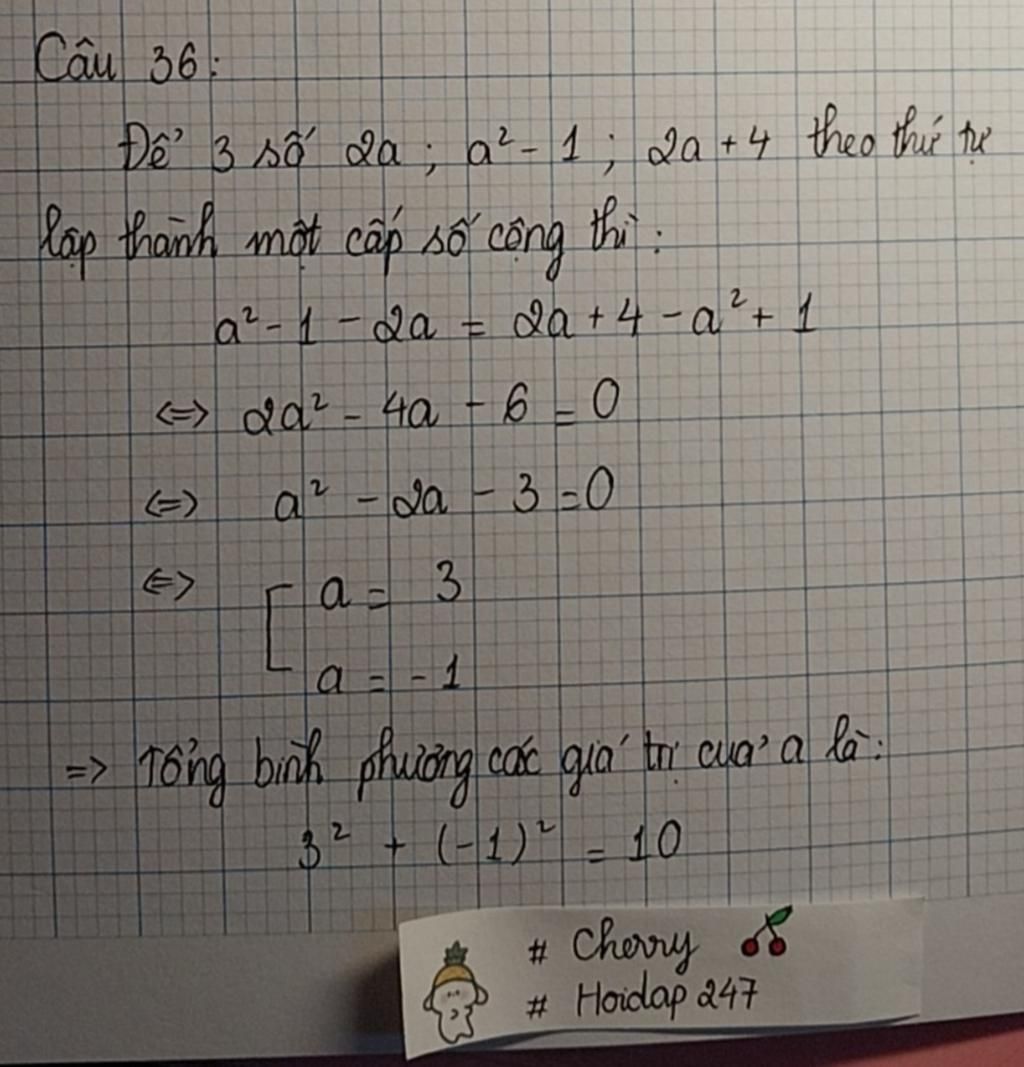 Câu 36:
Để 3 số 2a; a² - 1; 2a + 4 theo thứ tự
lập thành một cấp số cộng thì:
a² - 1 - 2a = 2a + 4 - a² + 1
<=> 2a² - 4a - 6 = 0
<=> a² - 2a - 3 = 0
<=> [ a = 3
a = -1
=> Tổng bình phương các giá trị của a là:
3² + (-1)² = 10
# Cherry 🍒
# Hoidap 247